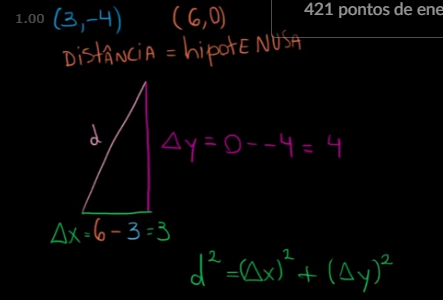 1.00 (3,-4) (6,0)
421 pontos de ene
DISTÂNCIA = hipotENUSA
d
Δy = 0 - -4 = 4
Δx = 6 - 3 = 3
d² = (Δx)² + (Δy)²